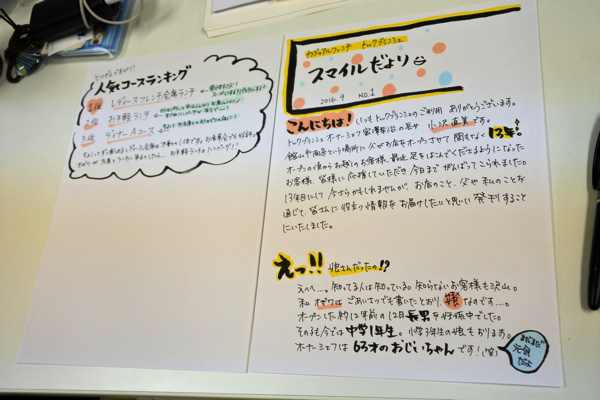 とっつぜんですが!!
人気コースランキング
1位 レディースフレンチ会席ランチ
2位 お手軽ランチ
3位 ディナーAコース
カジュアルフレンチ トックブランシェ
スマイルだより
2016.9 NO.1
こんにちは! いつもトックブランシェのご利用 ありがとうございます。
トックブランシェ オーナーシェフ 宮澤報治の長女 小沢直美です。
館山市南条という場所に父がお店をオープンさせて 間もなく13年!
オープンの頃からお越しのお客様、最近足をはこんでくださるようになった
お客様、皆様に応援していただき今日までがんばってこられました。
13年目にして今さらかもしれませんが、お店のこと、父や私のことが
通じて、皆さんに役立つ情報をお届けしたいと思い発刊すること
にいたしました。
えっ!! 娘さんだったの!?
えへへ…。知ってる人は知っている。知らないお客様も沢山。
私 オザワは ごあいさつでも書いたとおり、娘なのです…。
オープンした約12年前の12月 長男を妊娠中でした。
その子も今では中学1年生。小学3年生の娘もおります。
オーナーシェフは 63才のおじいちゃんです!(笑)
まだまだ
元気
だよ